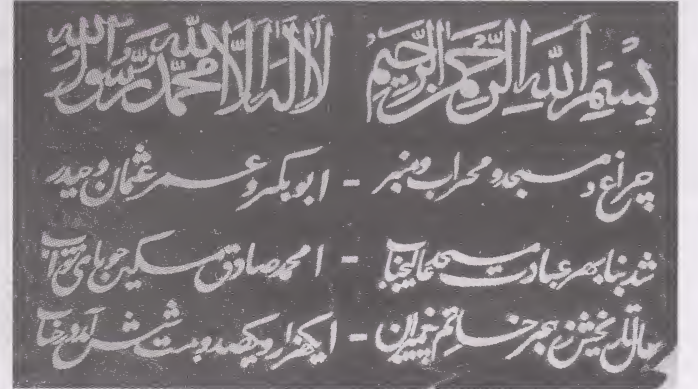 بِسْمِ اللهِ الرَّحْمٰنِ الرَّحِيْمِ لَا اِلٰهَ اِلَّا اللهُ مُحَمَّدٌ رَّسُوْلُ اللهِ
چراغ و مسجد و محراب و منبر - ابوبکر و عمر عثمان و حیدر
شد بنا بهر عبادت مسجد عالیجناب - ا محمد صادق مسکین جویای ثواب
ز هجر خاتم پیغمبران - ایکهزار و یکصد و بست شش آمد در